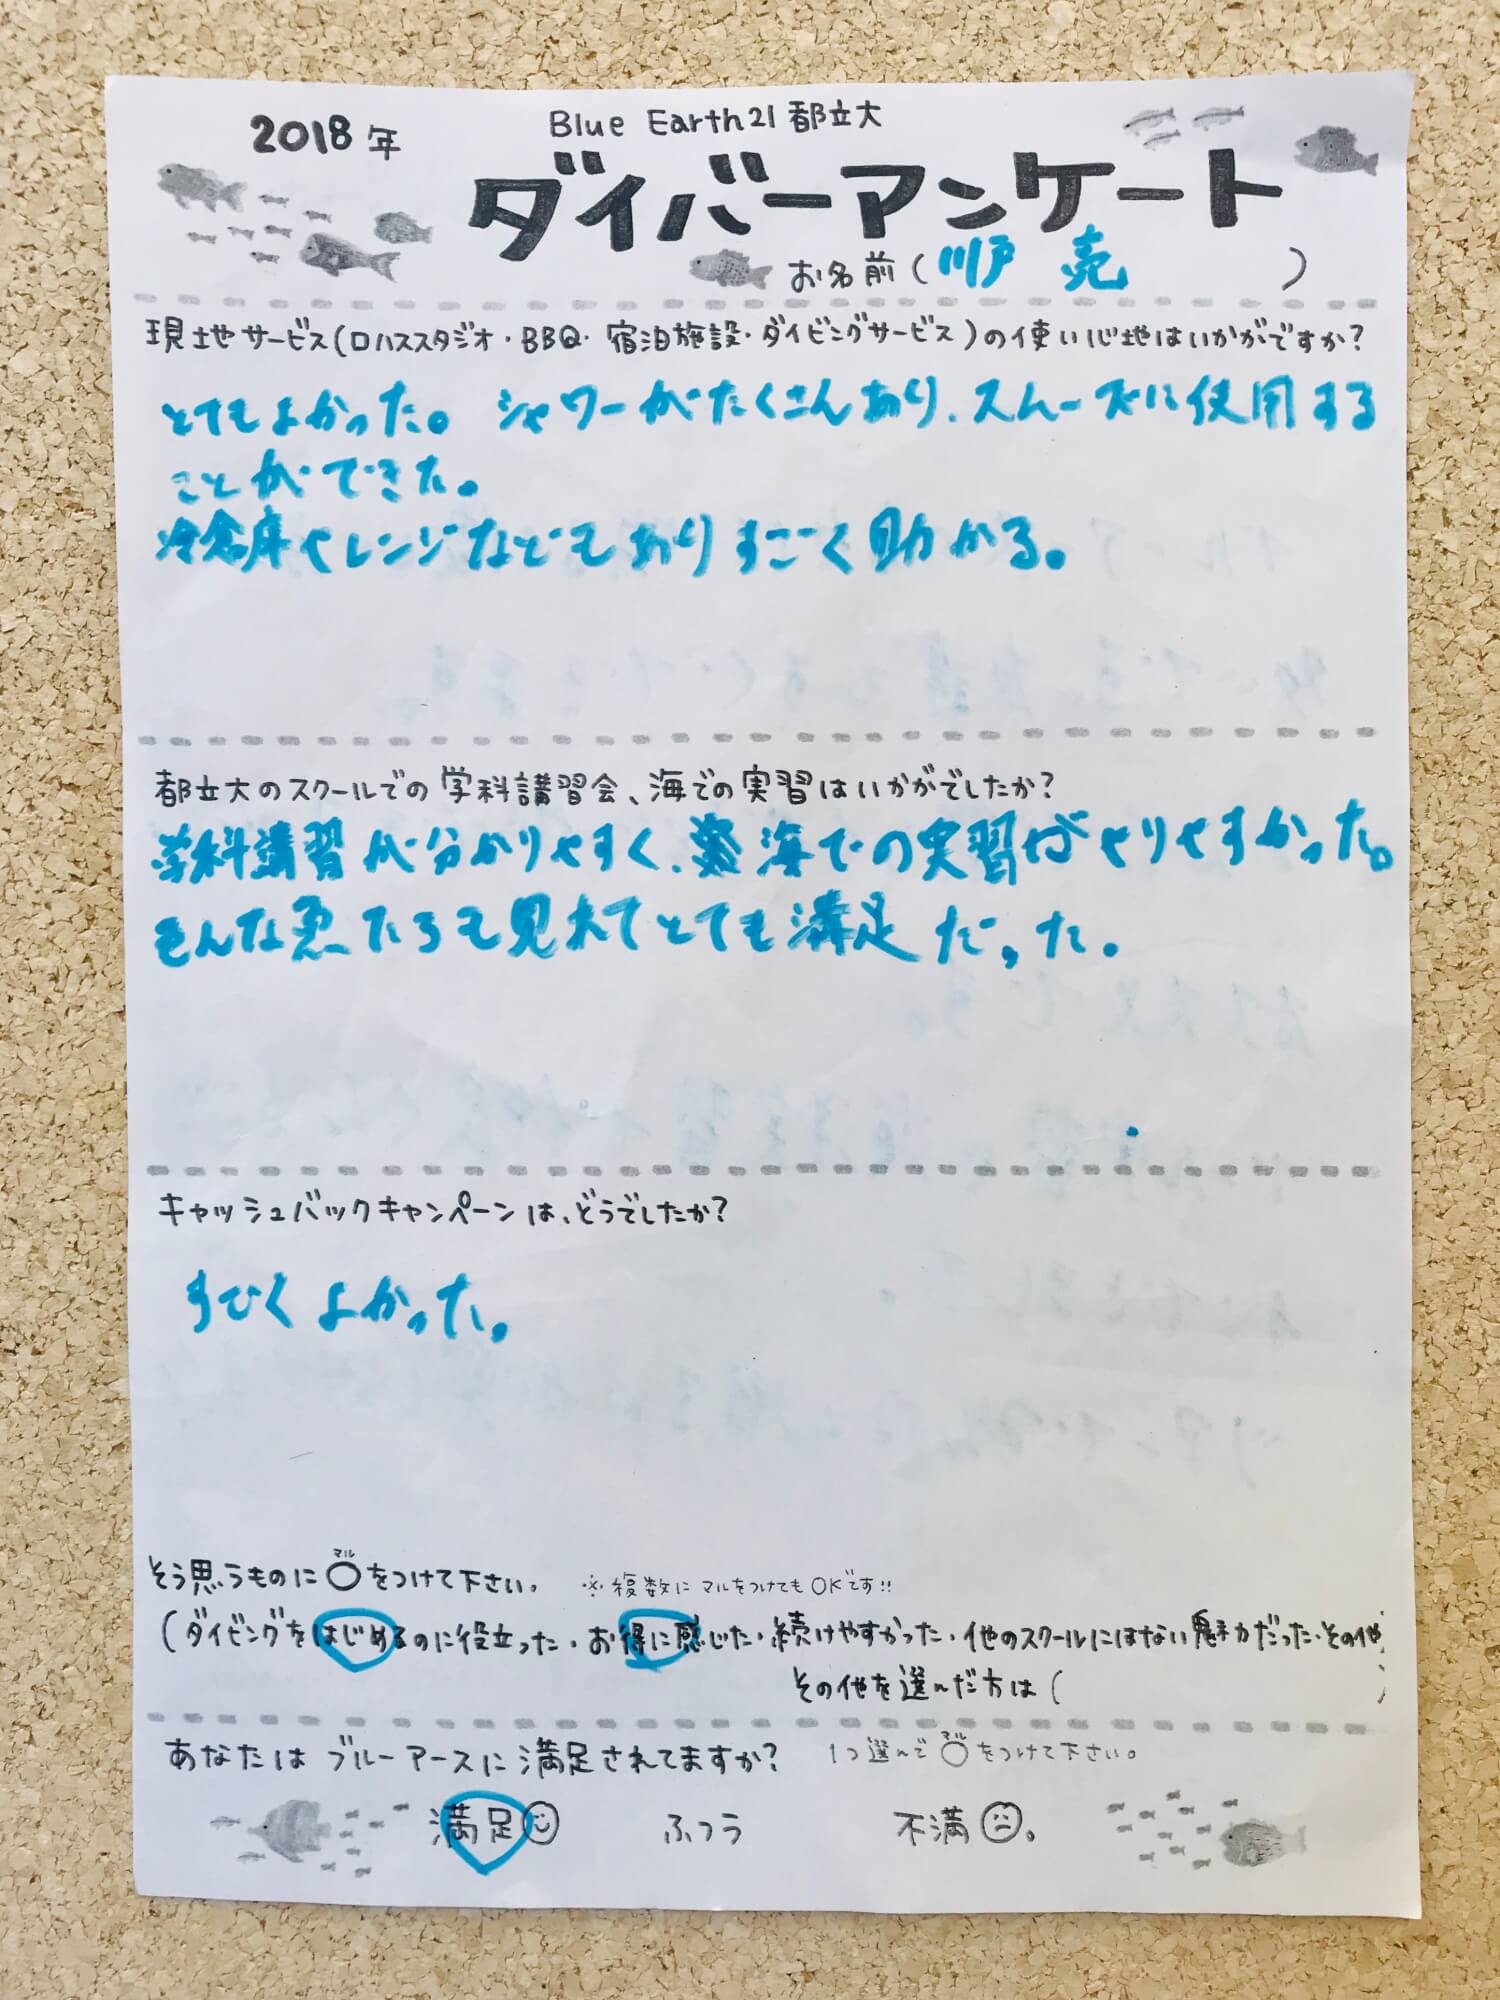 2018年
Blue Earth21 都立大
ダイバーアンケート
お名前(川戸 亮)
現地サービス(ロハススタジオ・BBQ・宿泊施設・ダイビングサービス)の使い心地はいかがですか?
とてもよかった。シャワーがたくさんあり、スムーズに使用する
ことができた。
冷倉庫やレンジなどもありすごく助かる。
都立大のスクールでの学科講習会、海での実習はいかがでしたか?
学科講習が分かりやすく、海での実習がやりやすかった。
色んな魚たちも見れてとても満足だった。
キャッシュバックキャンペーンは、どうでしたか?
すごくよかった。
マル
そう思うものに○をつけて下さい。 ※複数にマルをつけてもOKです!!
(ダイビングをはじめるのに役立った・お得に感じた・続けやすかった・他のスクールにはない魅力だった・その他)
その他を選んだ方は( )
あなたはブルーアースに満足されてますか? 1つ選んで○をつけて下さい。
マル
満足 ふつう 不満。